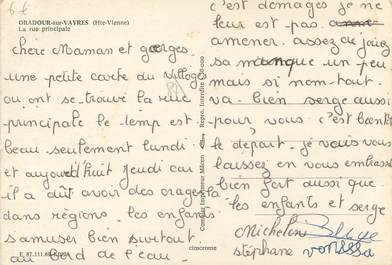 ORADOUR-sur-VAYRES (Hte-Vienne)
La rue principale
chère Maman et georges
une petite carte du village
ou ont se trouve la rue
principale le temp est
beau seulement lundi
et aujourd'huit jeudi car
il a dût avoir des orages
dans régions. les enfants
s'amuser bien surtout
au bord de l'eau
E. 87.111.
cimcrome
Combier Imprimeur Mâcon
Repro. Interdite
c'est domages je ne
leur est pas
amener. assez au jaiez
sa manque un peu
mais si nom tout
va bien serge aussi
pour vous. c'est bientôt
le départ je vous vous
laissez en vous embrass
bien fort aussi que
les enfants et serge
Micheline
stéphane vanessa